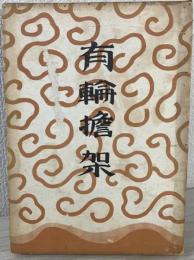 有輪擔架